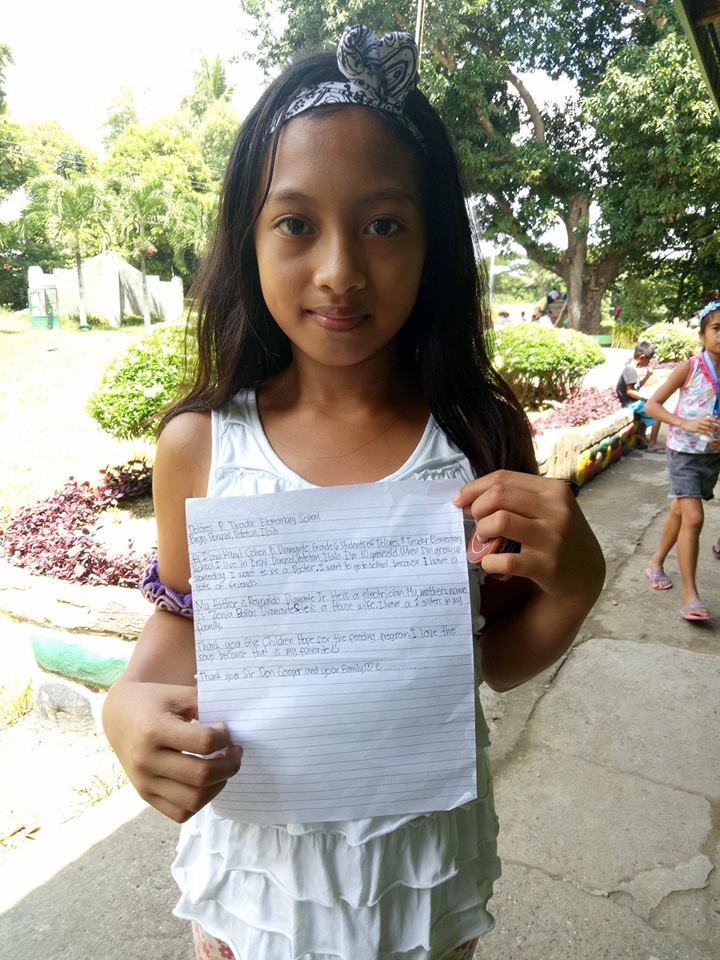 Dolores P. Tirador Elementary School
Brgy. Dongsol, Pototan, Iloilo
Hi I am Karyl Cohein B. Diamante Grade 6 students of Dolores P. Tirador Elementary
School. I live in brgy. Dongsol, Pototan, Iloilo. I'm 10 years old. When I'm grow up
someday I want to be a Doctor. I want to go to school because I have a
lots of friends.
My father is Reynaldo Diamante Jr. He is a electrician. My mothers name
is Zenia Diamante She is a House wife. I have a 2 sisters in my
family.
Thank you Give Children Hope for the feeding program. I love the
soup because that is my favorite
Thank you Sir Don Cooper and your family